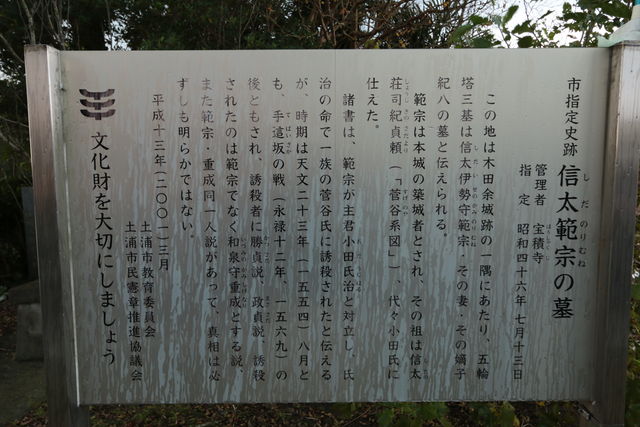 市指定史跡 信太範宗の墓
しだのりむね
管理者 宝積寺
ほうしゃくじ
指定 昭和四十六年七月十三日
この地は木田余城跡の一隅にあたり、五輪
塔三基は信太伊勢守範宗・その妻・その嫡子
紀八の墓と伝えられる。
範宗は本城の築城者とされ、その祖は信太
荘司紀貞頼（「菅谷系図」）、代々小田氏に
仕えた。
諸書は、範宗が主君小田氏治と対立し、氏
治の命で一族の菅谷氏に誘殺されたと伝える
が、時期は天文二十三年（一五五四）八月と
も、手這坂の戦（永禄十二年、一五六九）の
後ともされ、誘殺者に勝貞説、政貞説、誘殺
されたのは範宗でなく和泉守重成とする説、
また範宗・重成同一人説があって、真相は必
ずしも明らかではない。
平成十三年（二〇〇一）三月
土浦市教育委員会
土浦市民憲章推進協議会
文化財を大切にしましょう